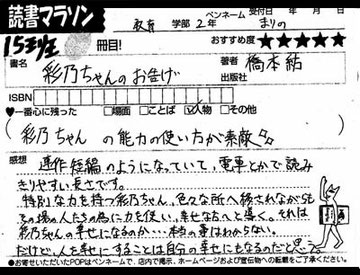 読書マラソン
教育 学部 2年
ペンネーム まりの
受付日 年 月 日
15冊目!
おすすめ度 ★★★★★
書名 彩乃ちゃんのお告げ
著者 橋本紡
出版社
ISBN
♥一番心に残った □場面 □ことば ☑人物 □その他
(彩乃ちゃんの能力の使い方が素敵)
感想 連作短編のようになっていて、電車とかで読み
きりやすい長さです。
特別な力を持つ彩乃ちゃん。色々な所へ移されながらも
その場の人たちの為に力を使い、幸せな方へと導く。それは
彩乃ちゃんの幸せになるのか…本当の事はわからない。
だけど、人を幸せにすることは自分の幸せにもなるのだと思う。
●お寄せいただいたPOPはペンネームで、店内で掲示、ホームページおよび宣伝物への転載をご了承ください。